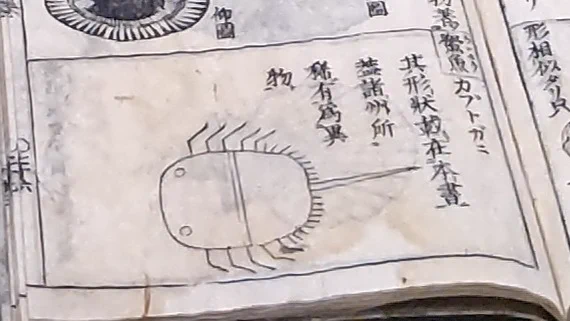 形相似タリ只
鱟魚カブトガニ
其形狀載在本書
蓋諸州所
稀有為異
物
圖
仰圖